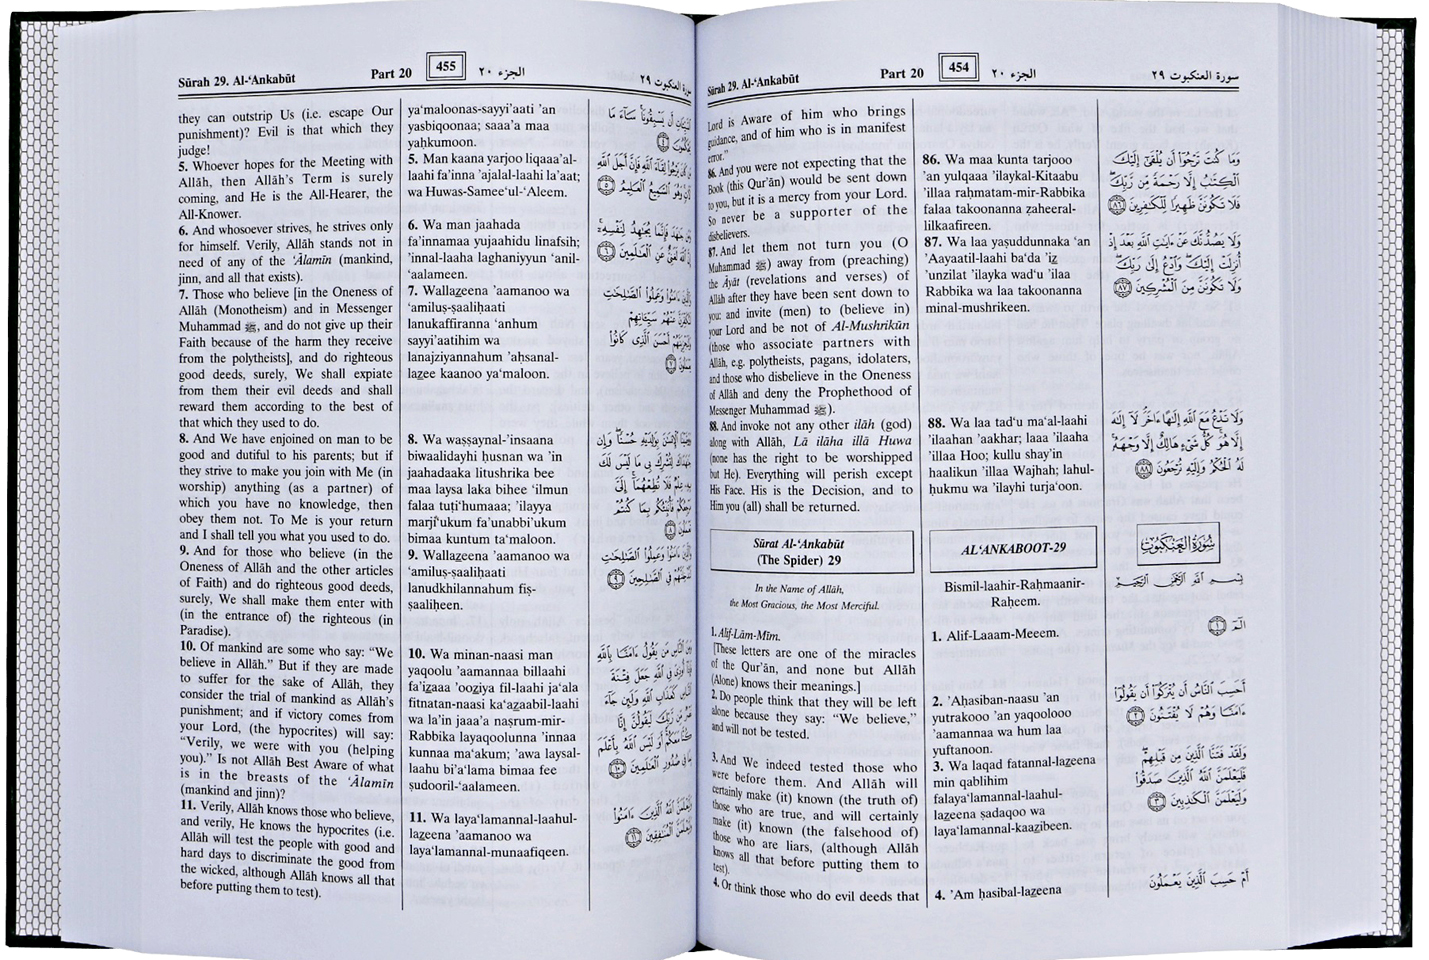 Sūrah 29. Al-‘Ankabūt
Part 20
454
الجزء ٢٠
سورة العنكبوت ٢٩
Lord is Aware of him who brings
guidance, and of him who is in manifest
error.”
86. And you were not expecting that the
Book (this Qur’ān) would be sent down
to you, but it is a mercy from your Lord.
So never be a supporter of the
disbelievers.
87. And let them not turn you (O
Muhammad ﷺ) away from (preaching)
the Āyāt (revelations and verses) of
Allāh after they have been sent down to
you: and invite (men) to (believe in)
your Lord and be not of Al-Mushrikūn
(those who associate partners with
Allāh, e.g. polytheists, pagans, idolaters,
and those who disbelieve in the Oneness
of Allāh and deny the Prophethood of
Messenger Muhammad ﷺ).
88. And invoke not any other ilāh (god)
along with Allāh, Lā ilāha illā Huwa
(none has the right to be worshipped
but He). Everything will perish except
His Face. His is the Decision, and to
Him you (all) shall be returned.
Sūrat Al-‘Ankabūt
(The Spider) 29
In the Name of Allāh,
the Most Gracious, the Most Merciful.
1. Alif-Lām-Mīm.
[These letters are one of the miracles
of the Qur’ān, and none but Allāh
(Alone) knows their meanings.]
2. Do people think that they will be left
alone because they say: “We believe,”
and will not be tested.
3. And We indeed tested those who
were before them. And Allāh will
certainly make (it) known (the truth of)
those who are true, and will certainly
make (it) known (the falsehood of)
those who are liars, (although Allāh
knows all that before putting them to
test).
4. Or think those who do evil deeds that
86. Wa maa kunta tarjooo
’an yulqaaa ’ilaykal-Kitaabu
’illaa raḥmatam-mir-Rabbika
falaa takoonanna ẓaheeral-
lilkaafireen.
87. Wa laa yaṣuddunnaka ‘an
’Aayaatil-laahi ba‘da ’iz
’unzilat ’ilayka wad‘u ’ilaa
Rabbika wa laa takoonanna
minal-mushrikeen.
88. Wa laa tad‘u ma‘al-laahi
’ilaahan ’aakhar; laaa ’ilaaha
’illaa Hoo; kullu shay’in
haalikun ’illaa Wajhah; lahul-
ḥukmu wa ’ilayhi turja‘oon.
AL‘ANKABOOT-29
Bismil-laahir-Raḥmaanir-
Raḥeem.
1. Alif-Laaam-Meeem.
2. ’Aḥasiban-naasu ’an
yutrakooo ’an yaqoolooo
’aamannaa wa hum laa
yuftanoon.
3. Wa laqad fatannal-lazeena
min qablihim
falaya‘lamannal-laahul-
lazeena ṣadaqoo wa
laya‘lamannal-kaazibeen.
4. ’Am ḥasibal-lazeena
وَمَا كُنتَ تَرْجُوٓاْ أَن يُلْقَىٰٓ إِلَيْكَ
ٱلْكِتَٰبُ إِلَّا رَحْمَةً مِّن رَّبِّكَ ۖ
فَلَا تَكُونَنَّ ظَهِيرًا لِّلْكَٰفِرِينَ ٨٦
وَلَا يَصُدُّنَّكَ عَنْ ءَايَٰتِ ٱللَّهِ بَعْدَ إِذْ
أُنزِلَتْ إِلَيْكَ ۖ وَٱدْعُ إِلَىٰ رَبِّكَ ۖ
وَلَا تَكُونَنَّ مِنَ ٱلْمُشْرِكِينَ ٨٧
وَلَا تَدْعُ مَعَ ٱللَّهِ إِلَٰهًا ءَاخَرَ ۘ لَآ إِلَٰهَ
إِلَّا هُوَ ۚ كُلُّ شَىْءٍ هَالِكٌ إِلَّا وَجْهَهُۥ ۚ
لَهُ ٱلْحُكْمُ وَإِلَيْهِ تُرْجَعُونَ ٨٨
سُورَةُ العَنكَبُوتِ
بِسْمِ ٱللَّهِ ٱلرَّحْمَٰنِ ٱلرَّحِيمِ
الٓمٓ ١
أَحَسِبَ ٱلنَّاسُ أَن يُتْرَكُوٓاْ أَن يَقُولُوٓاْ
ءَامَنَّا وَهُمْ لَا يُفْتَنُونَ ٢
وَلَقَدْ فَتَنَّا ٱلَّذِينَ مِن قَبْلِهِمْ ۖ
فَلَيَعْلَمَنَّ ٱللَّهُ ٱلَّذِينَ صَدَقُواْ
وَلَيَعْلَمَنَّ ٱلْكَٰذِبِينَ ٣
أَمْ حَسِبَ ٱلَّذِينَ يَعْمَلُونَ
Sūrah 29. Al-‘Ankabūt
Part 20
455
الجزء ٢٠
سورة العنكبوت ٢٩
they can outstrip Us (i.e. escape Our
punishment)? Evil is that which they
judge!
5. Whoever hopes for the Meeting with
Allāh, then Allāh’s Term is surely
coming, and He is the All-Hearer, the
All-Knower.
6. And whosoever strives, he strives only
for himself. Verily, Allāh stands not in
need of any of the ‘Ālamīn (mankind,
jinn, and all that exists).
7. Those who believe [in the Oneness of
Allāh (Monotheism) and in Messenger
Muhammad ﷺ, and do not give up their
Faith because of the harm they receive
from the polytheists], and do righteous
good deeds, surely, We shall expiate
from them their evil deeds and shall
reward them according to the best of
that which they used to do.
8. And We have enjoined on man to be
good and dutiful to his parents; but if
they strive to make you join with Me (in
worship) anything (as a partner) of
which you have no knowledge, then
obey them not. To Me is your return
and I shall tell you what you used to do.
9. And for those who believe (in the
Oneness of Allāh and the other articles
of Faith) and do righteous good deeds,
surely, We shall make them enter with
(in the entrance of) the righteous (in
Paradise).
10. Of mankind are some who say: “We
believe in Allāh.” But if they are made
to suffer for the sake of Allāh, they
consider the trial of mankind as Allāh’s
punishment; and if victory comes from
your Lord, (the hypocrites) will say:
“Verily, we were with you (helping
you).” Is not Allāh Best Aware of what
is in the breasts of the ‘Ālamīn
(mankind and jinn)?
11. Verily, Allāh knows those who believe,
and verily, He knows the hypocrites (i.e.
Allāh will test the people with good and
hard days to discriminate the good from
the wicked, although Allāh knows all that
before putting them to test).
ya‘maloonas-sayyi’aati ’an
yasbiqoonaa; saaa’a maa
yaḥkumoon.
5. Man kaana yarjoo liqaaa’al-
laahi fa’inna ’ajalal-laahi la’aat;
wa Huwas-Samee‘ul-‘Aleem.
6. Wa man jaahada
fa’innamaa yujaahidu linafsih;
’innal-laaha laghaniyyun ‘anil-
‘aalameen.
7. Wallazeena ’aamanoo wa
‘amiluṣ-ṣaaliḥaati
lanukaffiranna ‘anhum
sayyi’aatihim wa
lanajziyannahum ’aḥsanal-
lazee kaanoo ya‘maloon.
8. Wa waṣṣaynal-’insaana
biwaalidayhi ḥusnan wa ’in
jaahadaaka litushrika bee
maa laysa laka bihee ‘ilmun
falaa tuṭi‘humaaa; ’ilayya
marji‘ukum fa’unabbi’ukum
bimaa kuntum ta‘maloon.
9. Wallazeena ’aamanoo wa
‘amiluṣ-ṣaaliḥaati
lanudkhilannahum fiṣ-
ṣaaliḥeen.
10. Wa minan-naasi man
yaqoolu ’aamannaa billaahi
fa’izaaa ’ooziya fil-laahi ja‘ala
fitnatan-naasi ka‘azaabil-laahi
wa la’in jaaa’a naṣrum-mir-
Rabbika layaqoolunna ’innaa
kunnaa ma‘akum; ’awa laysal-
laahu bi’a‘lama bimaa fee
ṣudooril-‘aalameen.
11. Wa laya‘lamannal-laahul-
lazeena ’aamanoo wa
laya‘lamannal-munaafiqeen.
أَن يَسْبِقُونَا ۚ سَآءَ مَا
٤
يَرْجُواْ لِقَآءَ ٱللَّهِ فَإِنَّ أَجَلَ ٱللَّهِ
وَهُوَ ٱلسَّمِيعُ ٱلْعَلِيمُ ٥
جَٰهَدَ فَإِنَّمَا يُجَٰهِدُ لِنَفْسِهِۦٓ ۚ
ٱللَّهَ لَغَنِىٌّ عَنِ ٱلْعَٰلَمِينَ ٦
ءَامَنُواْ وَعَمِلُواْ ٱلصَّٰلِحَٰتِ
عَنْهُمْ سَيِّـَٔاتِهِمْ
أَحْسَنَ ٱلَّذِى كَانُواْ
٧
ٱلْإِنسَٰنَ بِوَٰلِدَيْهِ حُسْنًا ۖ وَإِن
لِتُشْرِكَ بِى مَا لَيْسَ لَكَ
بِهِۦ عِلْمٌ فَلَا تُطِعْهُمَآ ۚ إِلَىَّ
فَأُنَبِّئُكُم بِمَا كُنتُمْ
٨
ءَامَنُواْ وَعَمِلُواْ ٱلصَّٰلِحَٰتِ
فِى ٱلصَّٰلِحِينَ ٩
ٱلنَّاسِ مَن يَقُولُ ءَامَنَّا بِٱللَّهِ
أُوذِىَ فِى ٱللَّهِ جَعَلَ فِتْنَةَ
ٱلنَّاسِ كَعَذَابِ ٱللَّهِ وَلَئِن جَآءَ
مِّن رَّبِّكَ لَيَقُولُنَّ إِنَّا
كُنَّا مَعَكُمْ ۚ أَوَلَيْسَ ٱللَّهُ بِأَعْلَمَ
بِمَا فِى صُدُورِ ٱلْعَٰلَمِينَ ١٠
ٱللَّهُ ٱلَّذِينَ ءَامَنُواْ
ٱلْمُنَٰفِقِينَ ١١